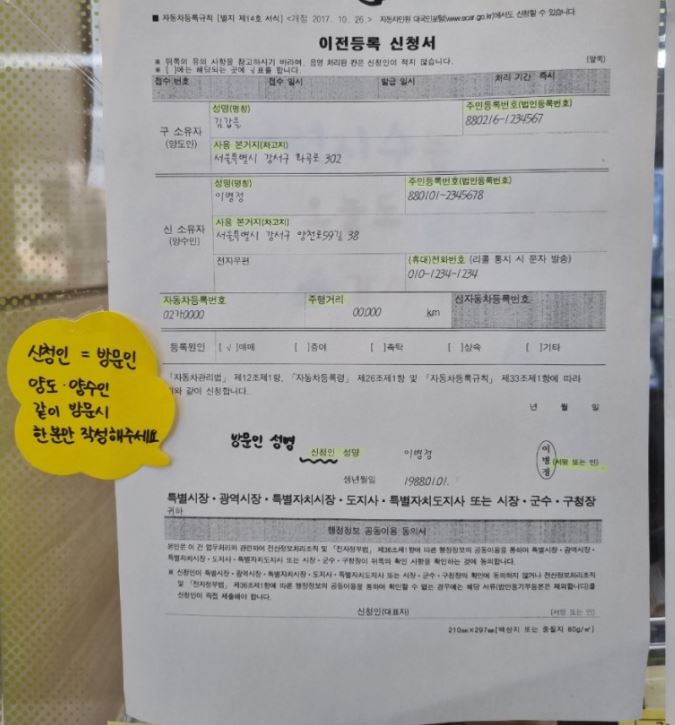 ■ 자동차등록규칙 [별지 제14호 서식] <개정 2017. 10. 26.> 자동차민원 대국민포털(www.ecar.go.kr)에서도 신청할 수 있습니다.
이전등록 신청서
※ 뒤쪽의 유의 사항을 참고하시기 바라며, 음영 처리된 란은 신청인이 적지 않습니다.
※ [ ]에는 해당되는 곳에 √표를 합니다. (앞쪽)
접수 번호 접수 일시 발급 일시 처리 기간 즉시
구 소유자
(양도인)
성명(명칭) 주민등록번호(법인등록번호)
김갑을 880216-1234567
사용 본거지(차고지)
서울특별시 강서구 화곡로 302
신 소유자
(양수인)
성명(명칭) 주민등록번호(법인등록번호)
이병정 880101-2345678
사용 본거지(차고지)
서울특별시 강서구 양천로59길 38
전자우편 (휴대)전화번호 (리콜 통지 시 문자 발송)
010-1234-1234
자동차등록번호 주행거리 신자동차등록번호
02가0000 00,000 km
등록원인 [ √ ]매매 [ ]증여 [ ]촉탁 [ ]상속 [ ]기타
「자동차관리법」 제12조제1항, 「자동차등록령」 제26조제1항 및 「자동차등록규칙」 제33조제1항에 따라
위와 같이 신청합니다.
년 월 일
신청인 = 방문인
양도·양수인
같이 방문시
한분만 작성해주세요
방문인 성명
신청인 성명 이병정 이병정 (서명 또는 인)
생년월일 1988.01.01.
특별시장·광역시장·특별자치시장·도지사·특별자치도지사 또는 시장·군수·구청장
귀하
행정정보 공동이용 동의서
본인은 이 건 업무처리와 관련하여 전산정보처리조직 및 「전자정부법」 제36조제1항에 따른 행정정보의 공동이용을 통하여 특별시장·광역시장·
특별자치시장·도지사·특별자치도지사 또는 시장·군수·구청장이 뒤쪽의 확인 사항을 확인하는 것에 동의합니다.
※ 신청인이 특별시장·광역시장·특별자치시장·도지사·특별자치도지사 또는 시장·군수·구청장의 확인에 동의하지 않거나 전산정보처리조직
및 「전자정부법」 제36조제1항에 따른 행정정보의 공동이용을 통하여 확인할 수 없는 경우에는 해당 서류(법인등기부등본은 제외합니다)를
신청인이 직접 제출해야 합니다.
신청인(대표자) (서명 또는 인)
210㎜×297㎜[백상지 또는 중질지 80g/㎡]